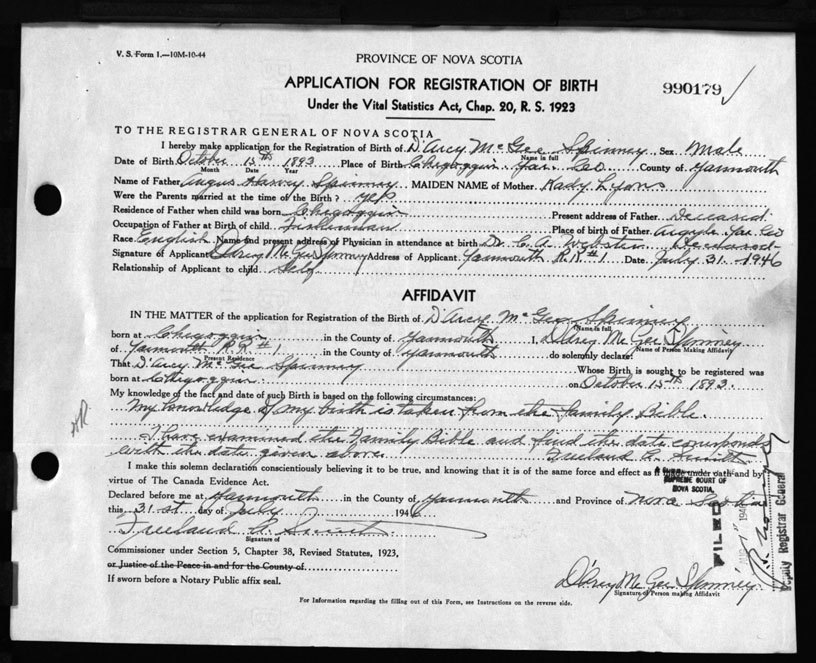 V. S. Form 1.—10M-10-44
PROVINCE OF NOVA SCOTIA
APPLICATION FOR REGISTRATION OF BIRTH
990179
Under the Vital Statistics Act, Chap. 20, R. S. 1923
TO THE REGISTRAR GENERAL OF NOVA SCOTIA
I hereby make application for the Registration of Birth of D'Arcy McGee Spinney Sex Male
Name in full
Date of Birth October 15th 1893 Place of Birth Chegoggin Yar. Co County of Yarmouth
Month Date Year
Name of Father Angus Harvey Spinney MAIDEN NAME of Mother Kady Lyons
Were the Parents married at the time of the Birth? yes
Residence of Father when child was born Chegoggin Present address of Father Deceased
Occupation of Father at Birth of child Fisherman Place of birth of Father Argyle Yar. Co
Race English Name and present address of Physician in attendance at birth Dr. C. A. Webster Deceased
Signature of Applicant D'Arcy McGee Spinney Address of Applicant Yarmouth R.R #1 Date July 31 1946
Relationship of Applicant to child Self
AFFIDAVIT
IN THE MATTER of the application for Registration of the Birth of D'Arcy McGee Spinney
Name in full
born at Chegoggin in the County of Yarmouth I, D'Arcy McGee Spinney
Name of Person Making Affidavit
of Yarmouth R.R #1 in the County of Yarmouth do solemnly declare:
Present Residence
That D'Arcy McGee Spinney Whose Birth is sought to be registered was
born at Chegoggin on October 15th 1893.
My knowledge of the fact and date of such Birth is based on the following circumstances:
My knowledge of my birth is taken from the family Bible.
I have examined the Family Bible and find the date corresponds
with the date given above Freeland A. Smith
I make this solemn declaration conscientiously believing it to be true, and knowing that it is of the same force and effect as if made under oath and by
virtue of The Canada Evidence Act.
SUPREME COURT OF
NOVA SCOTIA
Declared before me at Yarmouth in the County of Yarmouth and Province of Nova Scotia
this 31st day of July 1946
FILED
Freeland A. Smith
Signature of
Deputy Registrar General
Commissioner under Section 5, Chapter 38, Revised Statutes, 1923,
or Justice of the Peace in and for the County of
If sworn before a Notary Public affix seal.
D'Arcy McGee Spinney
Signature of Person making Affidavit
For Information regarding the filling out of this Form, see Instructions on the reverse side.